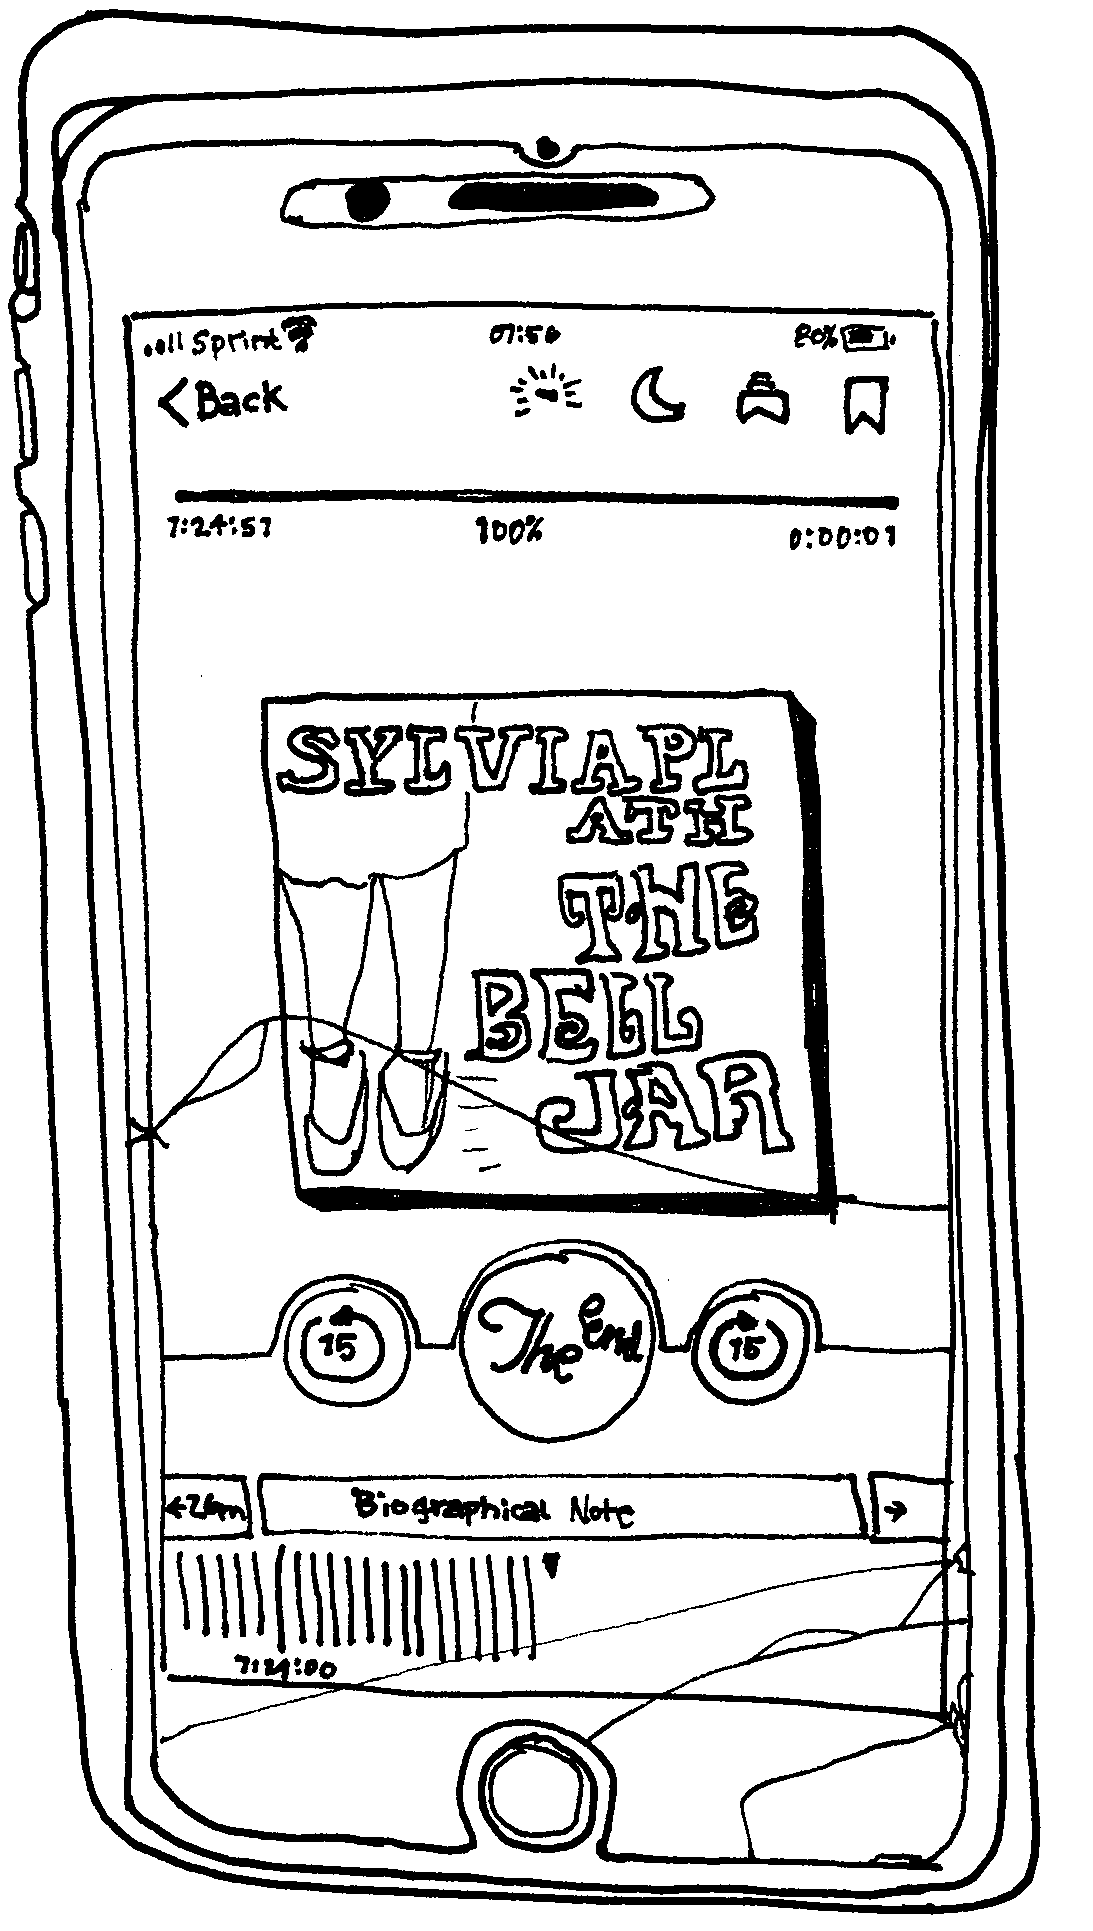 Sprint 07:56 80%
Back
7:24:57 100% 0:00:01
SYLVIAPL
ATH
THE
BELL
JAR
15 The End 15
←26m Biographical Note →
7:24:00